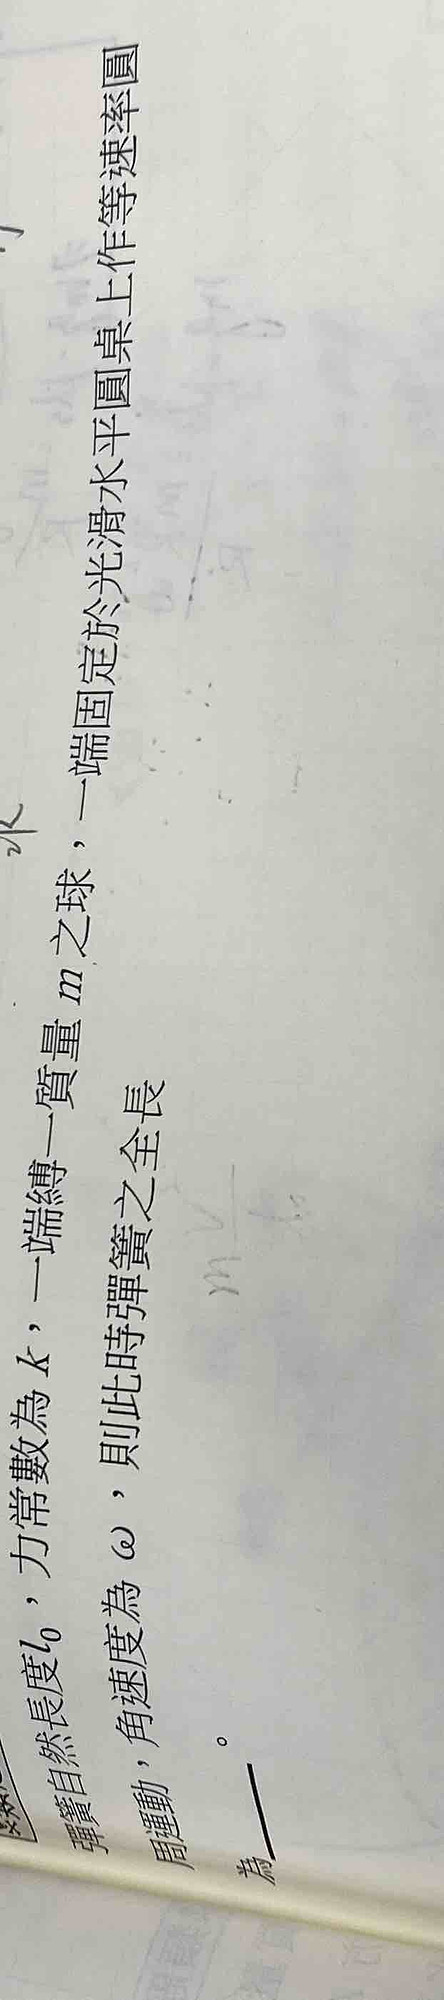 彈簧自然長度l₀，力常數為 k，一端縛一質量 m 之球，一端固定於光滑水平圓桌上作等速率圓
周運動，角速度為 ω，則此時彈簧之全長
為______。